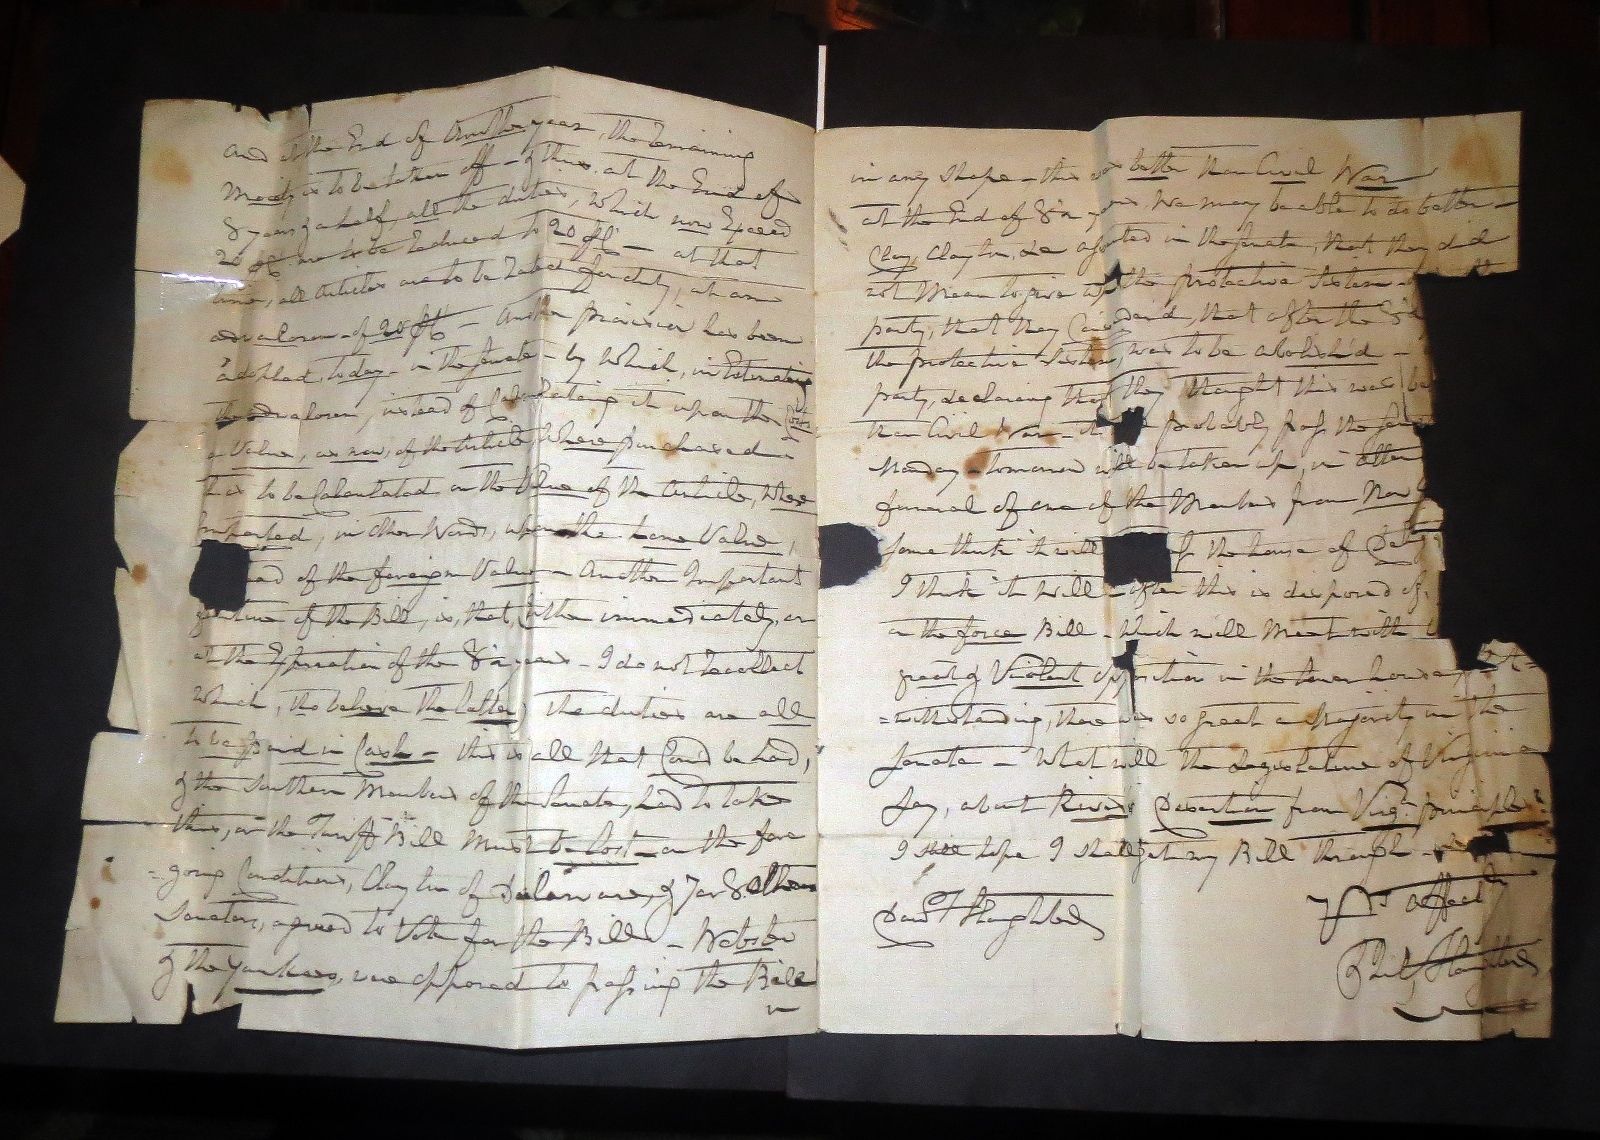 and at the End of Another year, the remaining
Moiety is to be taken off - & thus at the End of
8 years & a half, all the duties, which now Exceed
20 pCt are to be Reduced to 20 pCt - at that
time, all articles are to be Rated for duty, at an
advalorem - of 20 pCt - Another provision has been
adopted, today - in the Senate - by which, in Estimating
the advalorem, instead of Calculating it upon the
Value, as now, of the Article Where purchased -
it is to be Calculated on the Value of the article, Where
Imported, in other Words, upon the home Value,
of the foreign Value - Another Important
feature of the Bill, is, that, Either immediately, or
at the Expiration of the 8½ years - I do not Recollect
which, tho believe the latter, the duties are all
to be paid in Cash - this is all that Could be had,
& the Southern Members of the Senate, had to take
this, or the Tariff Bill Must be lost - on the fore
=going Conditions, Clayton of Delaware, & 7 or 8 others
Senators, agreed to Vote for the Bill - Webster
& the Yankees, were opposed to passing the Bill
in any shape - this is better than Civil War
at the End of 8½ years We may be able to do better -
Clay, Clayton, &c in the Senate, that they did
not Mean to give up the protective System -
party, that they that after the 8½
the protective System, was to be abolish'd -
party, declaring that they thought this was
than Civil War - it probably pass the
Monday - tomorrow will be taken up, in
funeral of one of the Members from New
Some think it will the house of
I think it will - after this is disposed of,
on the force Bill - Which will Meet with
great & Violent opposition in the lower house,
=withstanding, there was so great a Majority in the
Senate - What will the Legislature of Virginia
Say, about Rives's Desertion from Virga. principles
I still hope I shall get my Bill through -
Yrs affecty
Danl. F. Slaughter
Phil. Slaughter